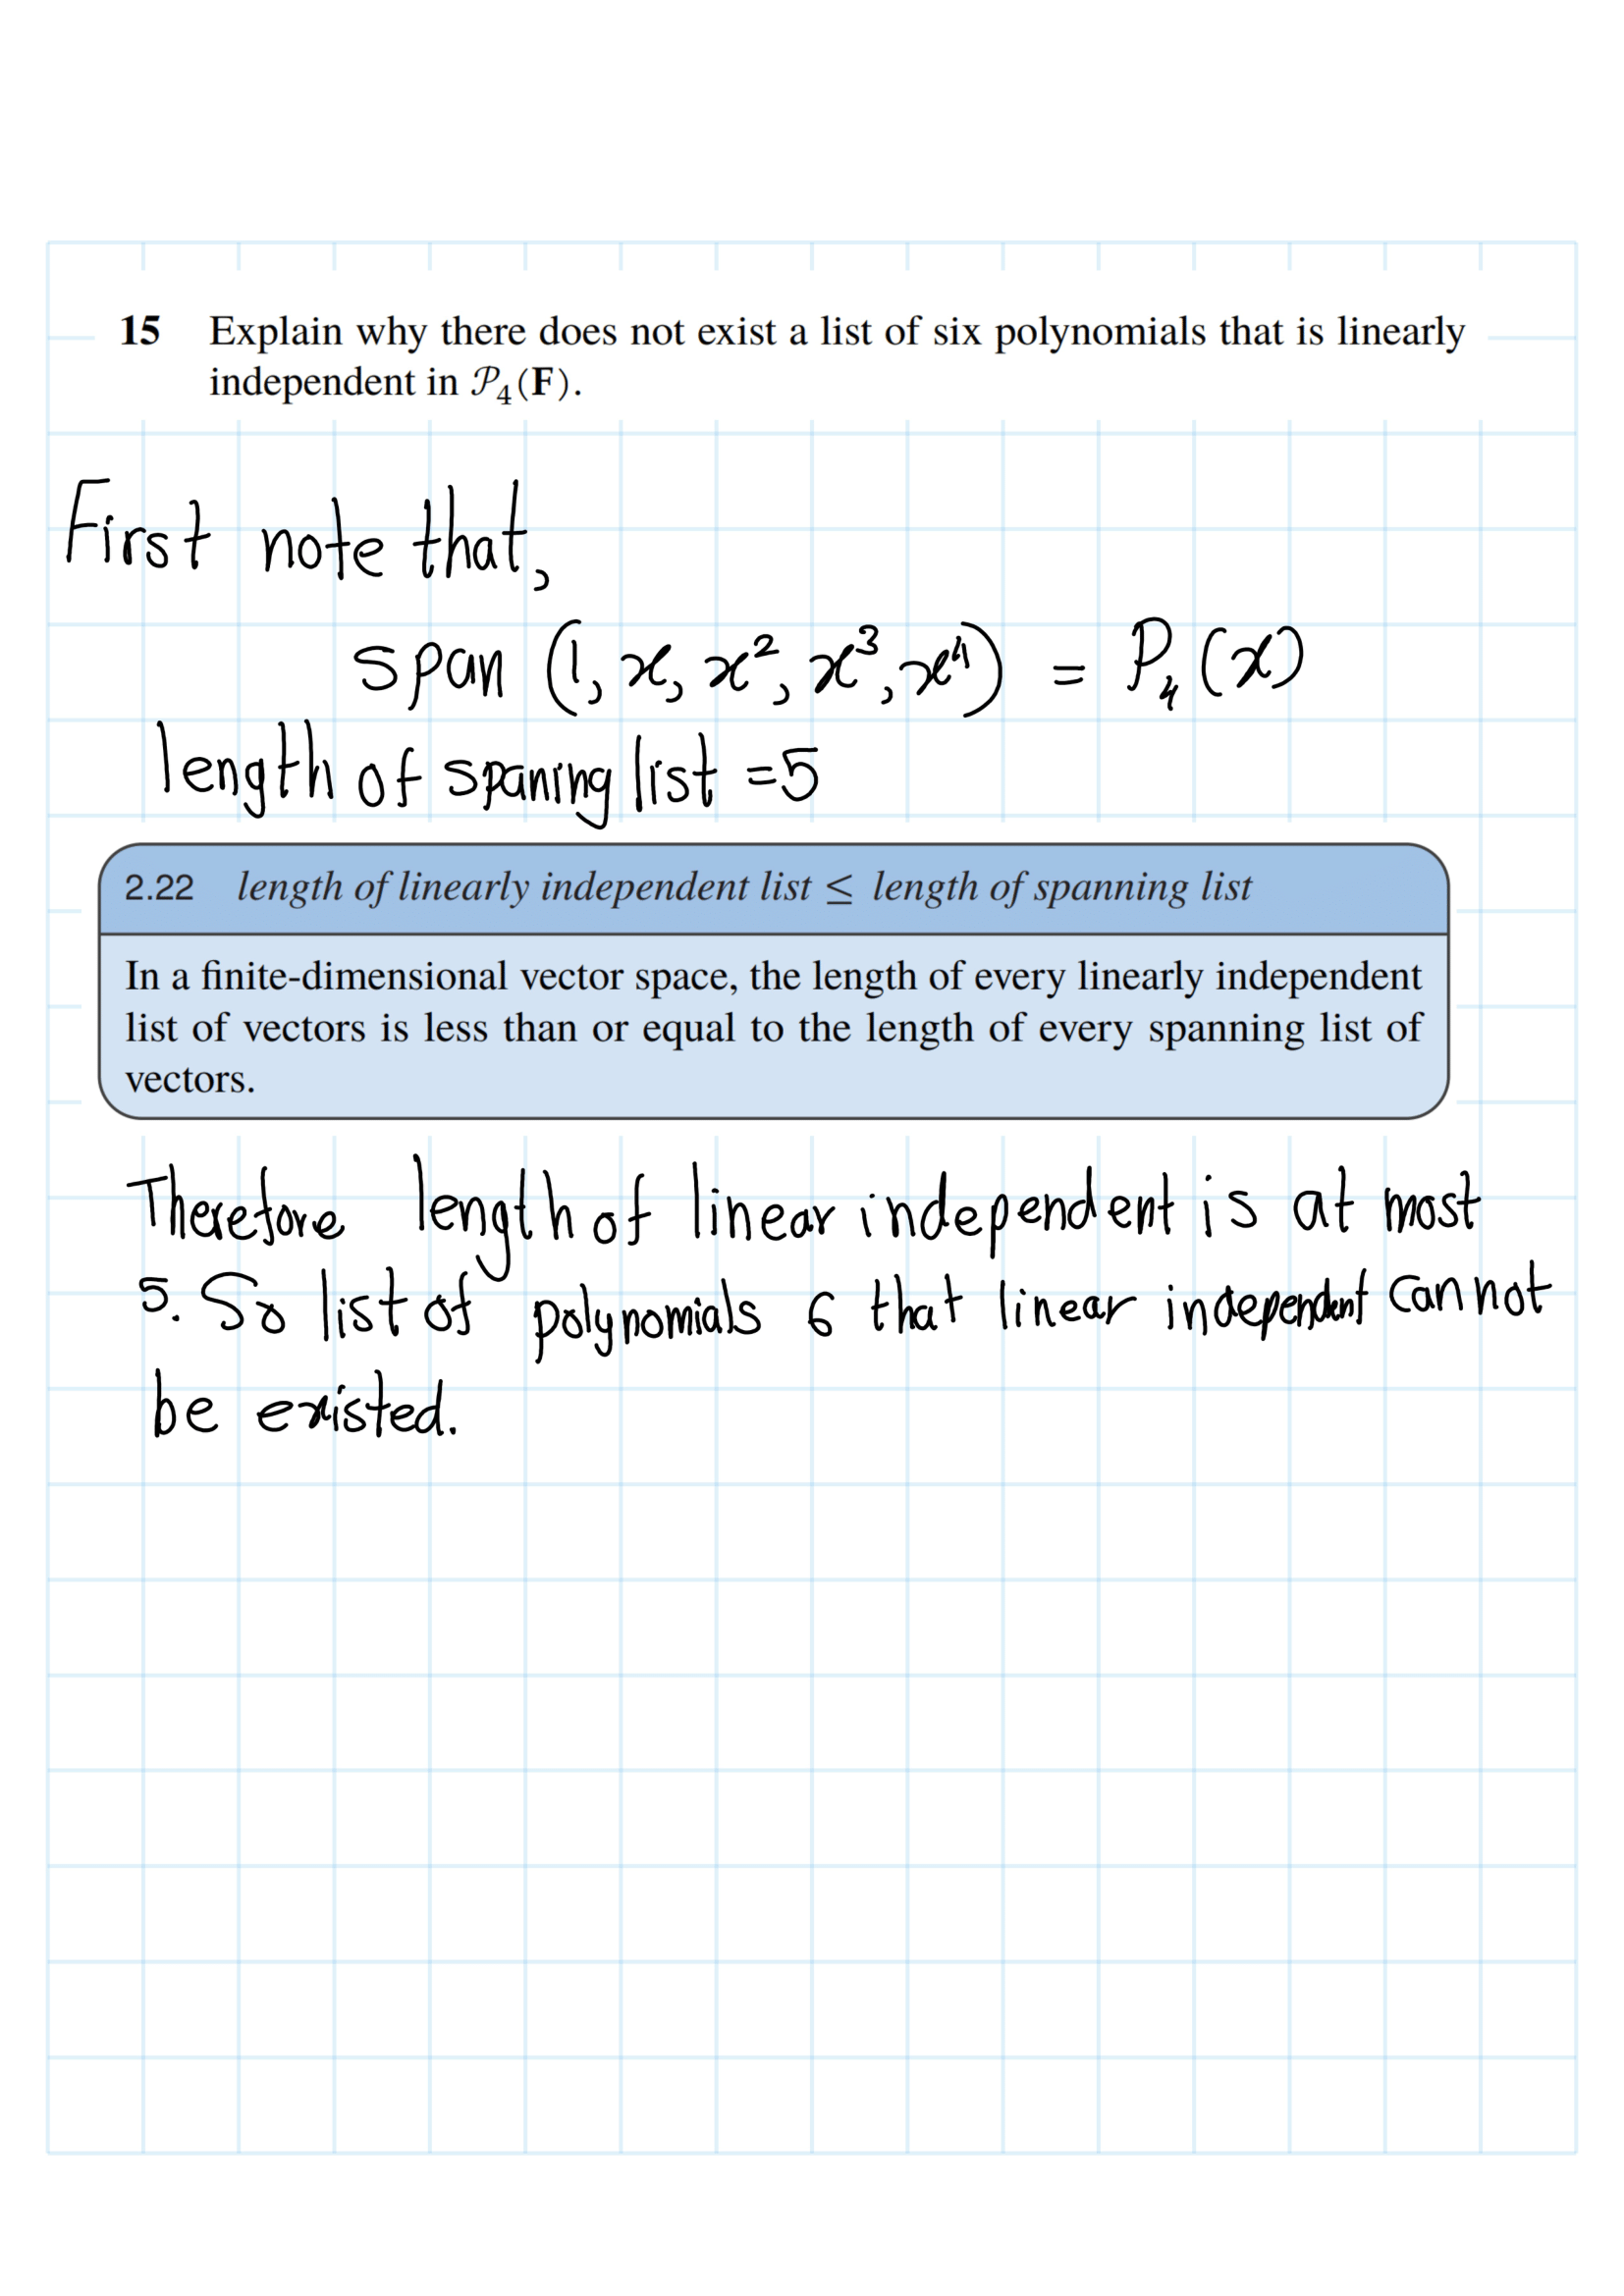 15 Explain why there does not exist a list of six polynomials that is linearly
independent in 𝒫₄(F).
First note that,
span (1, x, x², x³, x⁴) = P₄(x)
length of spaning list = 5
2.22 length of linearly independent list ≤ length of spanning list
In a finite-dimensional vector space, the length of every linearly independent
list of vectors is less than or equal to the length of every spanning list of
vectors.
Therefore length of linear independent is at most
5. So list of polynomials 6 that linear independent cannot
be existed.